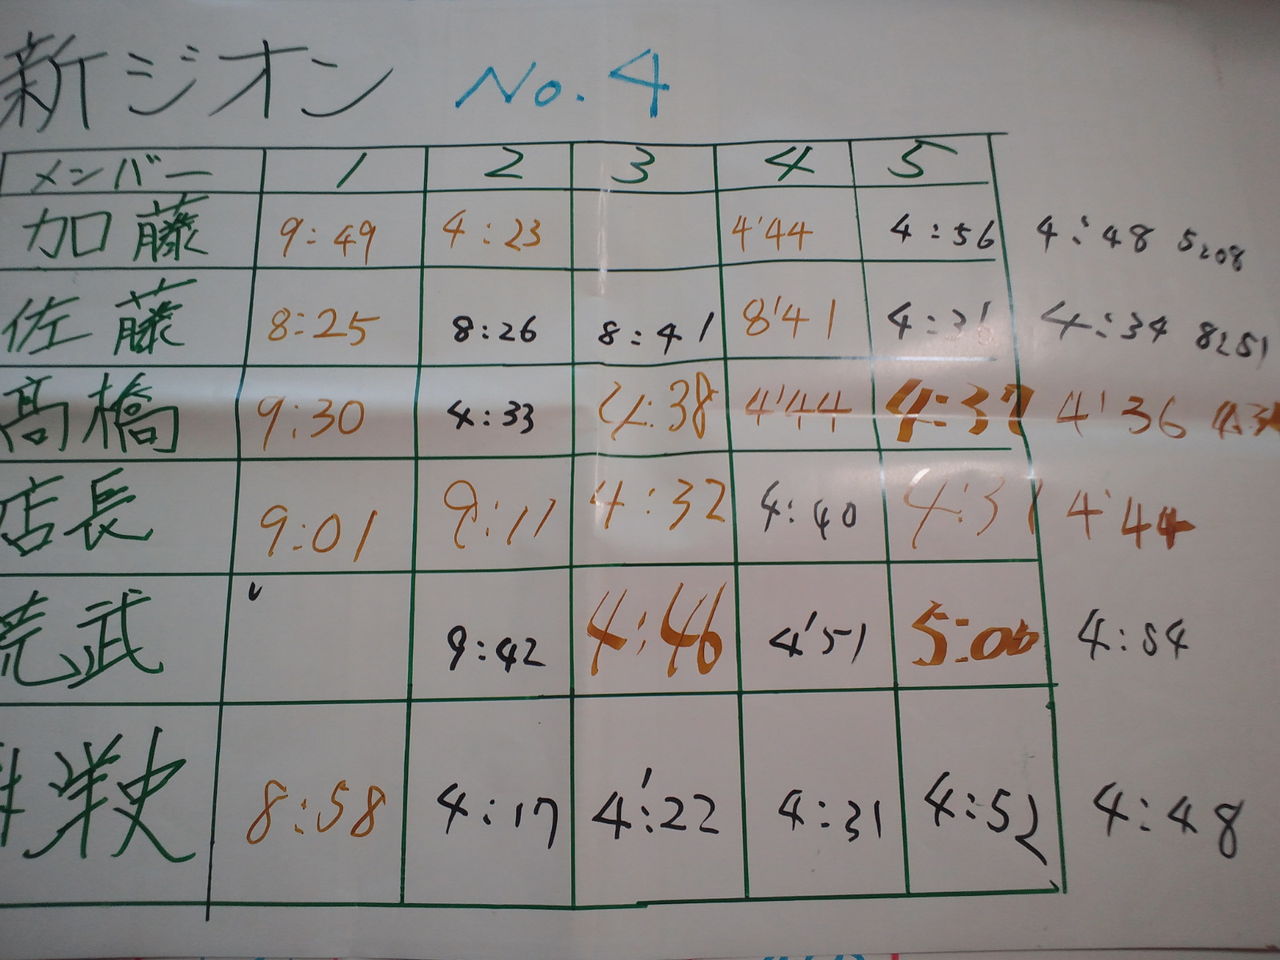 新ジオン No.4
メンバー 1 2 3 4 5
加藤 9:49 4:23 4'44 4:56 4:48 5:08
佐藤 8:25 8:26 8:41 8'41 4:31 4:34 8:51
高橋 9:30 4:33 4:38 4'44 4:37 4'36
店長 9:01 9:11 4:32 4:40 4:31 4'44
荒武 9:42 4:46 4'51 5:06 4:54
洋史 8:58 4:17 4:22 4:31 4:52 4:48